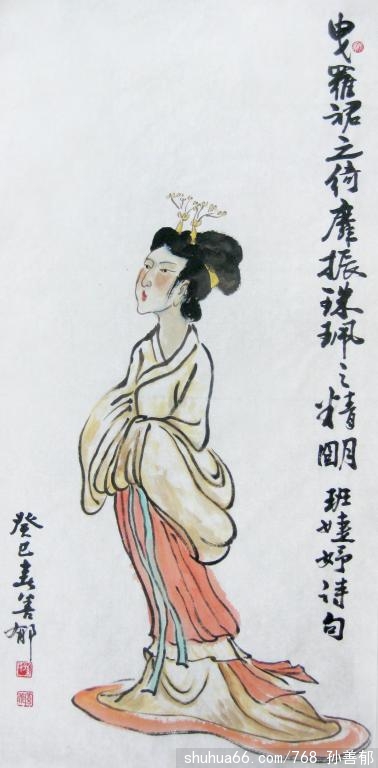 曳羅裙之倚靡振珠珮之精明 班婕妤诗句
癸巳春善郁
shuhua66.com/768 孙善郁